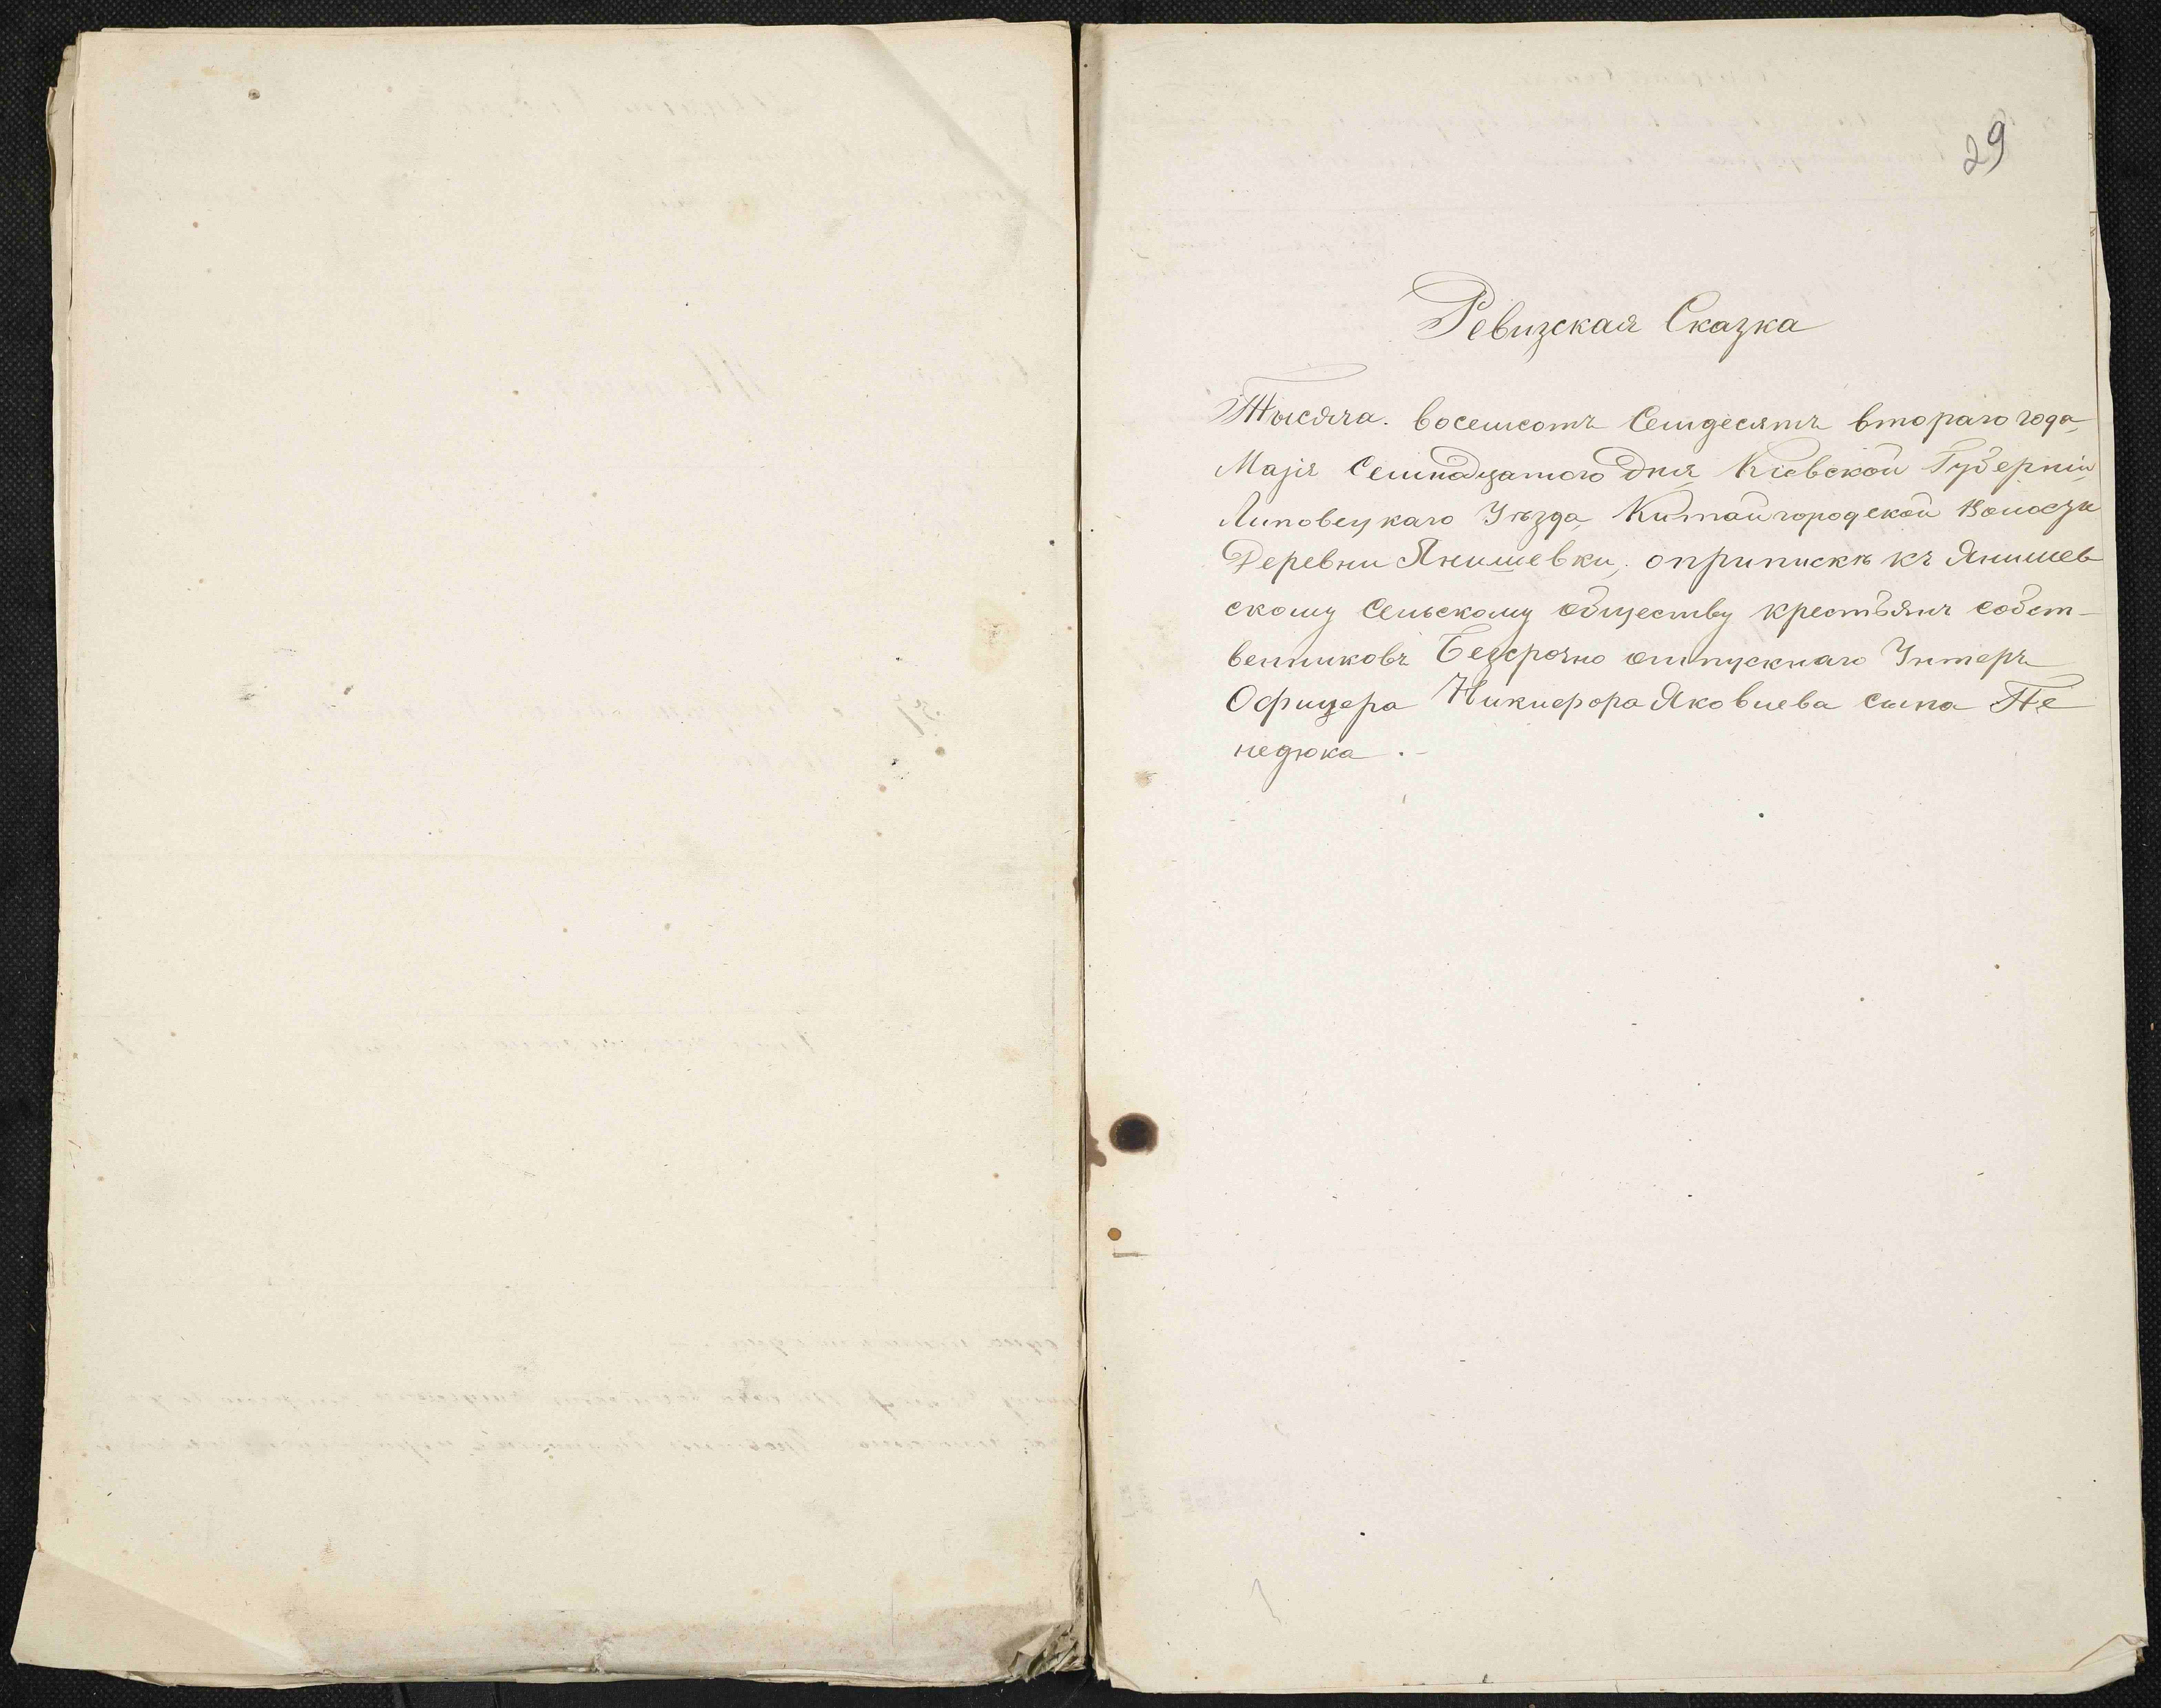 29
Ревизская Сказка
Тысяча. восемсотъ Семдесятъ втораго года,
Маія Семнадцатого Дня Кіевской Губерніи,
Липовецкаго Уѣзда, Китайгородской Волосзи
Деревни Янишевки, оприпискѣ къ Янишев
скому Сельскому обществу крестьянъ собст-
венниковъ Безсрочно отпускнаго Унтеръ
Офицера Никифора Яковлева сына Пе
недюка.-